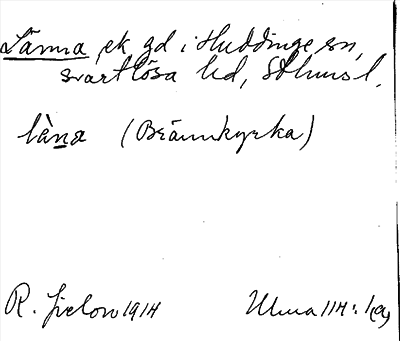 Länna, ek gd i Huddinge sn,
svartlösa hd, Sthms l.
làna (Brännkyrka)
R. 1914 Ulma 114: